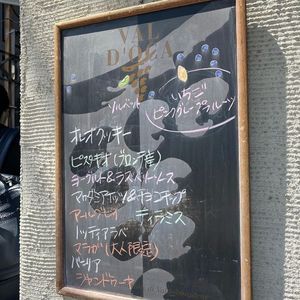 VAL
D'OCA
ソルベット
いちご
ピンクグレープフルーツ
オレオクッキー
ピスタチオ(ブロンテ産)
ヨーグルト&ラズベリーソース
マカダミアナッツ&チョコチップ
アールグレイ
ティラミス
ノッティアラベ
マラガ(大人限定)
バーチ
ジャンドゥーヤ